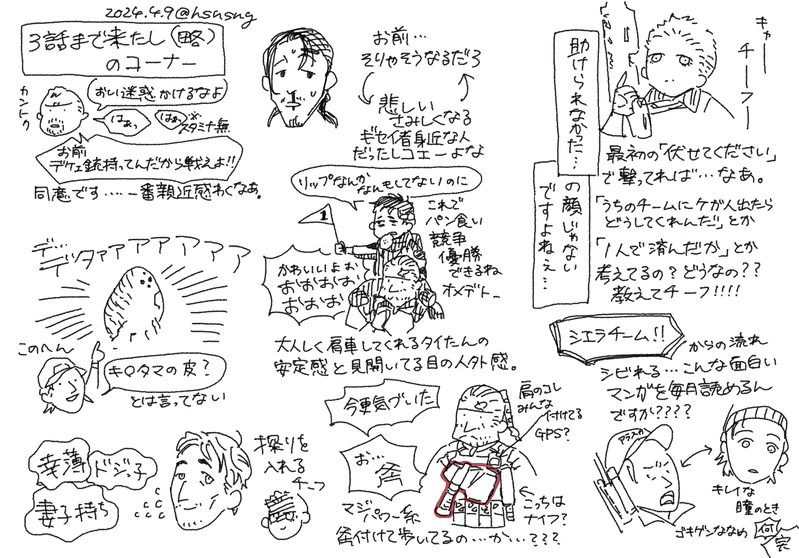 2024.4.9@hsnsng
3話まで来たし(略)
のコーナー
カントク
おい迷惑かけるなよ
はぁっ
はぁっ
※スタミナ無
お前
デケェ銃持ってんだから戦えよ!!
同意です……一番親近感わくなぁ。
お前…
そりゃそうなるだろ
悲しい
さみしくなる
ギセイ者身近な人
だったしコエーよなよ
キャー
チーフー
助けられなかった…
の顔じゃない
ですよねぇ…
最初の「伏せてください」
で撃ってれば…なぁ。
「うちのチームにケガ人出たら
どうしてくれんだ」とか
「1人で済んだか」とか
考えてるの?どうなの??
教えてチーフ!!!!
デ…
デッタァァアアアアアア
このへん
キ○タマの皮?
とは言ってない
リップなんか
なんもしてないのに
1
これで
パン食い
競争
優勝
できるね
オメデトー
かわいいよぉ
おおおお
おおおお
大人しく肩車してくれるタイたんの
安定感と見開いてる目の人外感。
シエラチーム!!
からの流れ
シビれる…こんな面白い
マンガを毎月読めるん
ですか????
アラスカ
キレイな
瞳のとき
ゴキゲンななめ
何
完
幸薄
ドジっ子
妻子持ち
探りを
入れる
チーフ
今更気づいた
お…
斧
マジパワー系
斧付けて歩いてるの…か…???
肩のコレ
みんな
付けてる
GPS?
こっちは
ナイフ?